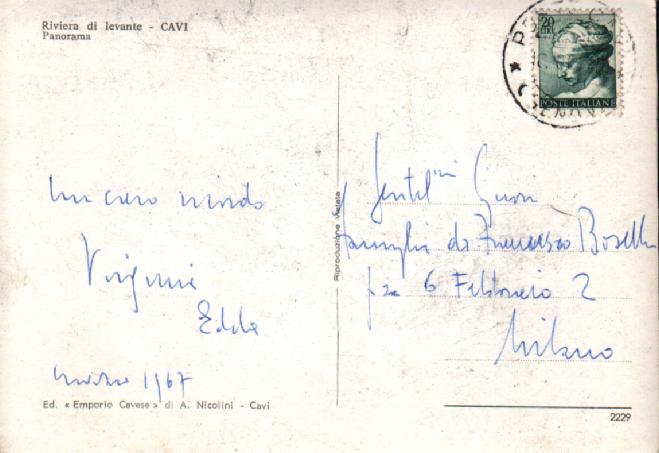 Riviera di levante - CAVI
Panorama
20
POSTE ITALIANE
GENOVA
un caro ricordo
Virginia
Edda
marzo 1967
Riproduzione Vietata
Gentil^mi Sign
Famiglia dr. Francesco Boselli
pza 6 Febbraio 2
Milano
Ed. « Emporio Cavese » di A. Nicolini - Cavi
2229